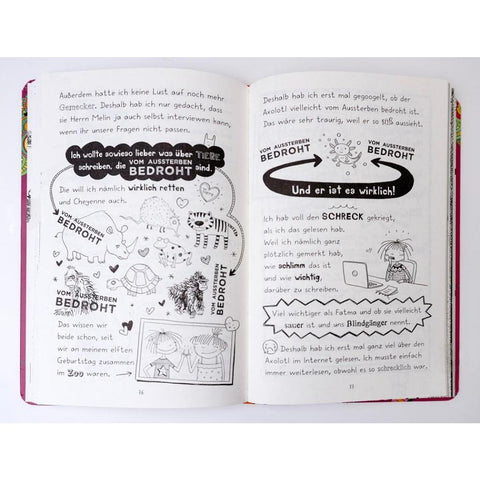 Außerdem hatte ich keine Lust auf noch mehr
Gemecker. Deshalb hab ich nur gedacht, dass
sie Herrn Melin ja auch selbst interviewen kann,
wenn ihr unsere Fragen nicht passen.
Ich wollte sowieso lieber was über TIERE
schreiben, die VOM AUSSTERBEN BEDROHT sind.
Die will ich nämlich wirklich retten
und Cheyenne auch.
VOM AUSSTERBEN
BEDROHT
VOM AUSSTERBEN
BEDROHT
VOM AUSSTERBEN
BEDROHT
Das wissen wir
beide schon, seit
wir an meinem elften
Geburtstag zusammen
im Zoo waren.
16
Deshalb hab ich erst mal gegoogelt, ob der
Axolotl vielleicht vom Aussterben bedroht ist.
Das wäre sehr traurig, weil er so süß aussieht.
VOM AUSSTERBEN
BEDROHT
VOM AUSSTERBEN
BEDROHT
Und er ist es wirklich!
Ich hab voll den SCHRECK gekriegt,
als ich das gelesen hab.
Weil ich nämlich ganz
plötzlich gemerkt hab,
wie schlimm das ist
und wie wichtig,
darüber zu schreiben.
Viel wichtiger als Fatma und ob sie vielleicht
sauer ist und uns Blindgänger nennt.
Deshalb hab ich erst mal ganz viel über den
Axolotl im Internet gelesen. Ich musste einfach
immer weiterlesen, obwohl es so schrecklich war.